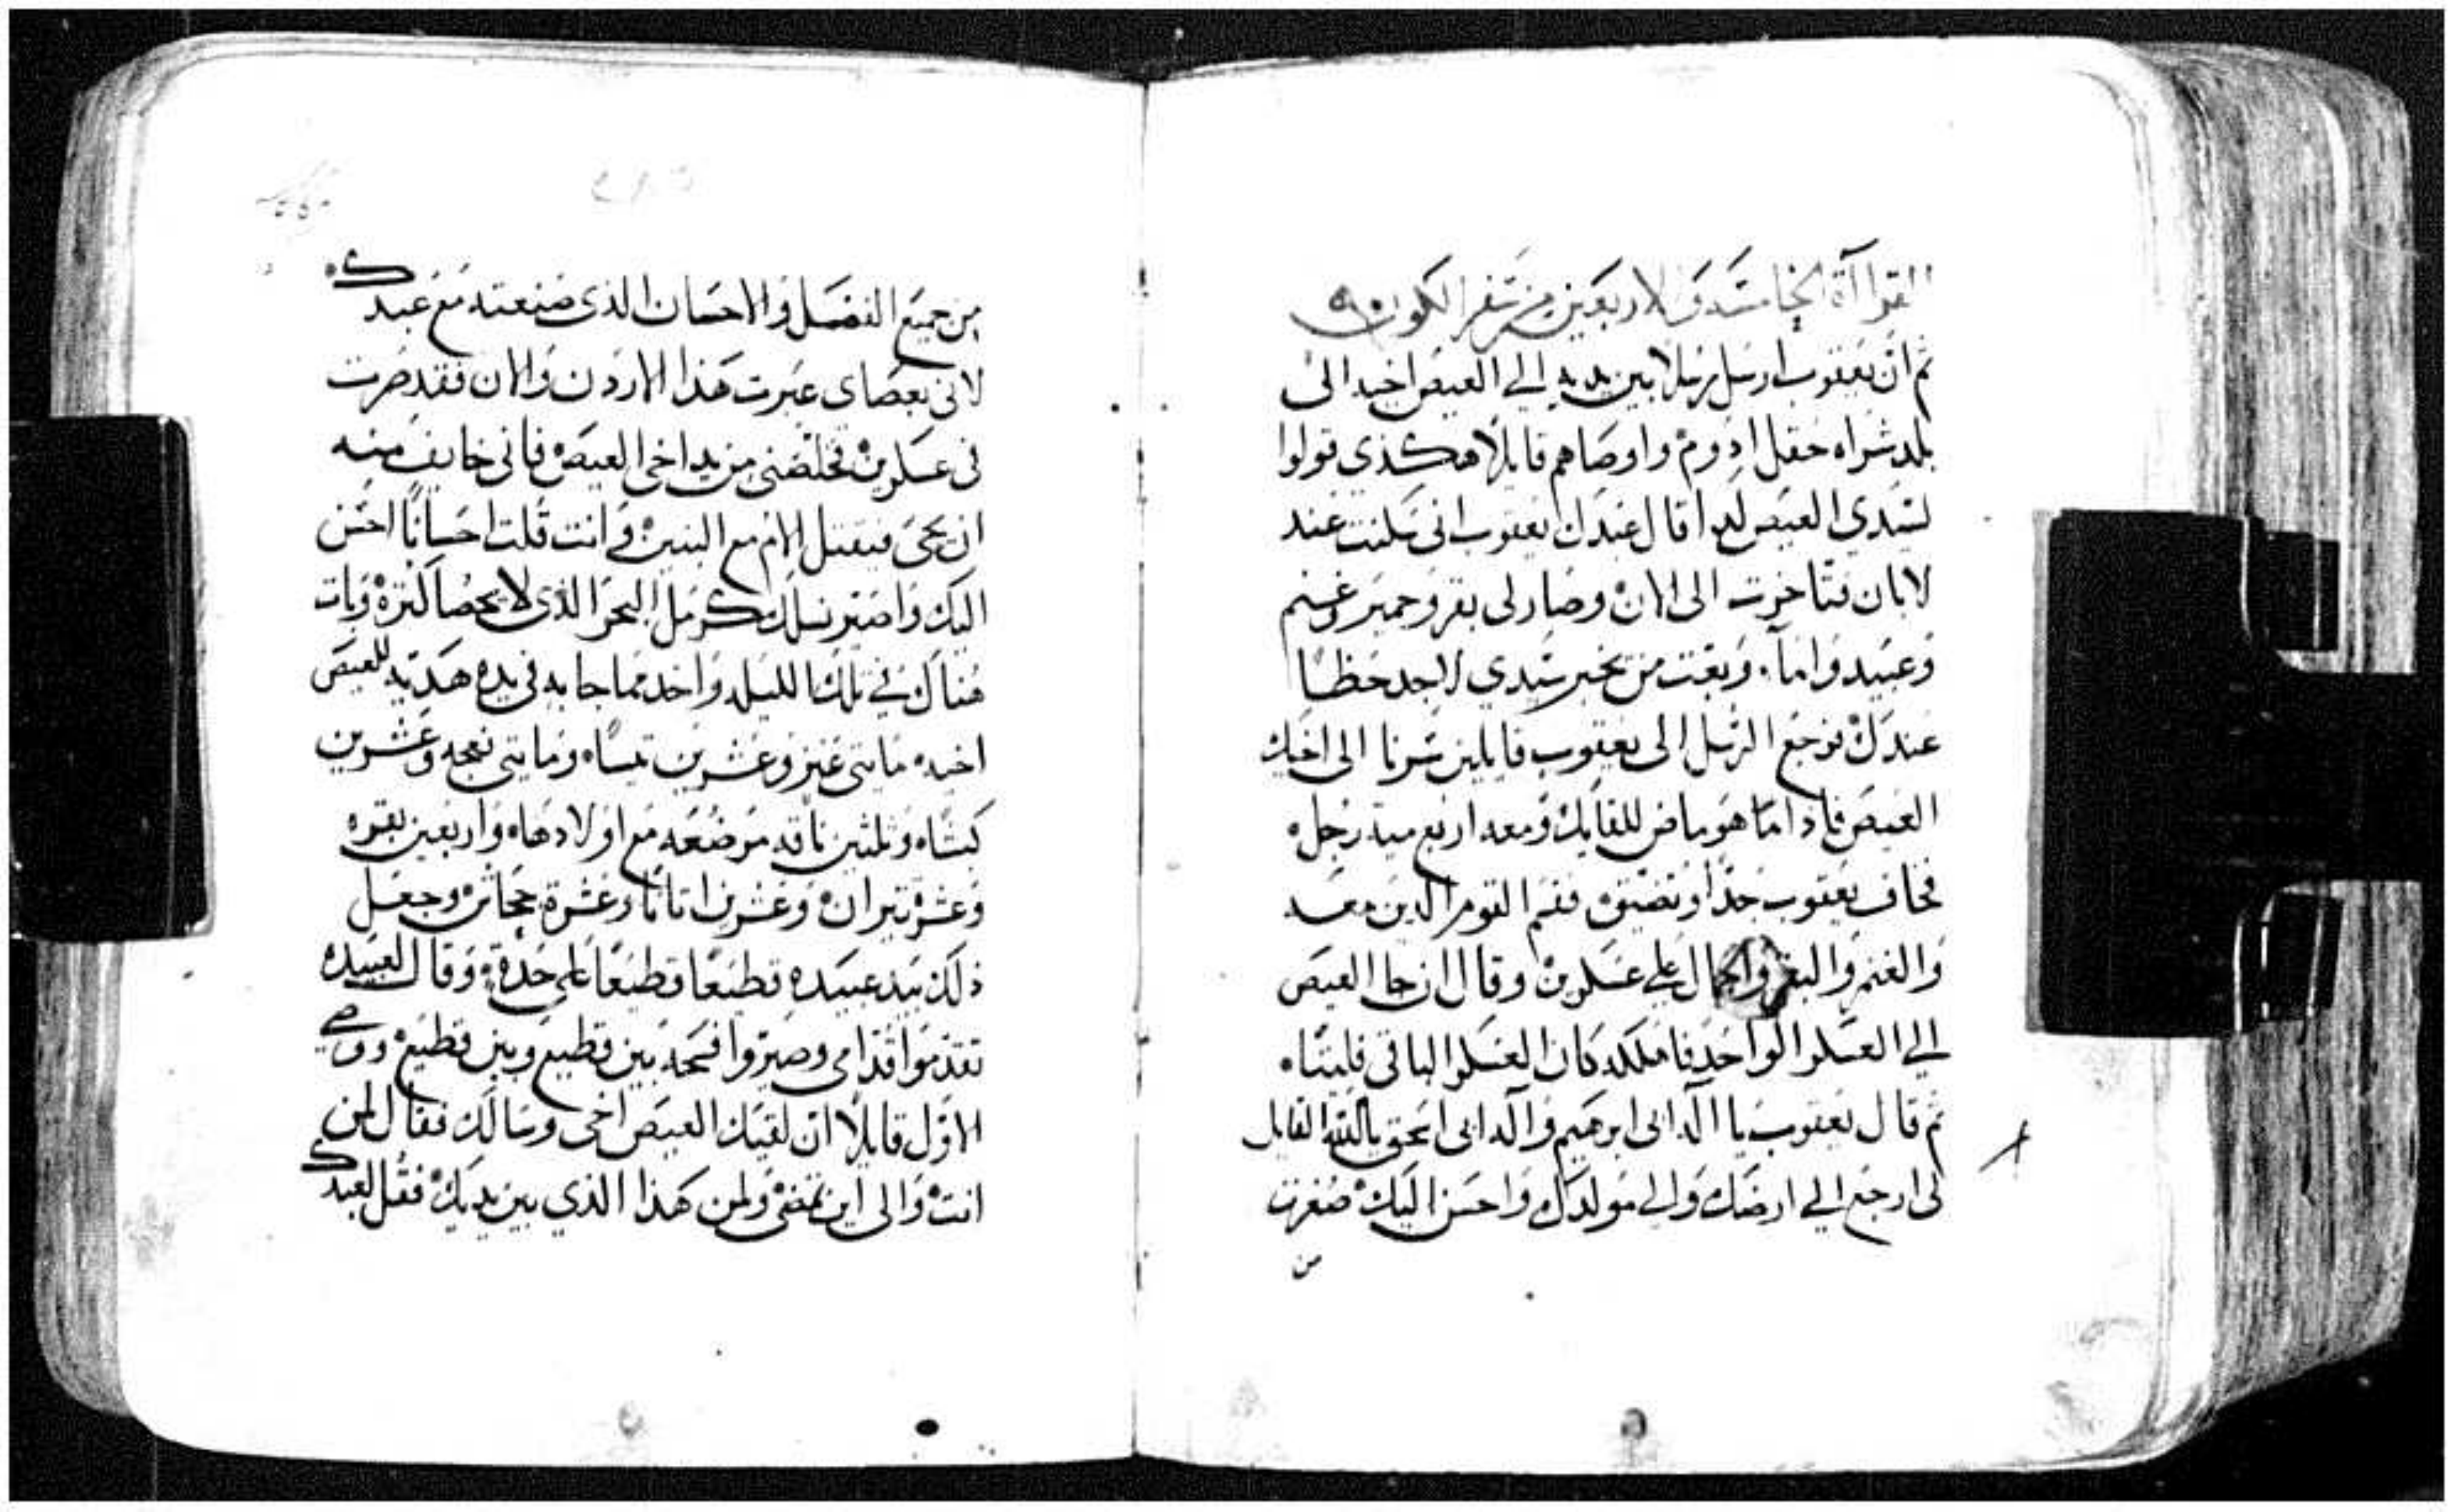 القراآة الخامسه والاربعين من سفر الكون
ثم ان يعقوب ارسل رسلا بين يديه الي العيص اخيه الى
بلد شراه حقل ادوم واوصاهم قايلا هكذي قولوا
لسيدي العيص كذا قال عبدك يعقوب اني سكنت عند
لابان فتاخرت الى الان وصار لى بقر وحمير وغنم
وعبيد واما. وبعتت من يخبر سيدي لاجد حظا
عندك فرجع الرسل الى يعقوب قايلين سرنا الى اخيك
العيص فاداما هو ماض للقايك ومعه اربع مية رجل
فخاف يعقوب جدا وتضيق فقسم القوم الدين معه
والغنم والبقر والجمال علي عسكرين وقال ان جا العيص
الي العسكر الواحد فاهلكه كان العسكر الباقي فليتا
تم قال يعقوب يا اله ابى ابرهيم واله ابى اسحق يا الله القايل
لى ارجع الي ارضك والي مولدك واحسن اليك صغرت
من
من جميع الفضل والاحسان الذى صنعته مع عبدك
لانى بعصاى عبرت هذا الاردن والان فقد صرت
فى عسكرين فخلصنى من يد اخى العيص فانى خايف منه
ان يجى فيقتل الام مع البنين وانت قلت احسانا احسن
اليك واصير نسلك كرمل البحر الذى لا يحصا كترة وبات
هناك في تلك الليله واخد مما جا به فى يده هديه للعيص
اخيه مايتى عنز وعشرين تيسا ومايتى نعجه وعشرين
كبشا وتلتين ناقه مرضعه مع اولادها واربعين بقره
وعشرة تيران وعشرين اتانا وعشرة جحاش وجعل
ذلك بيد عبيده قطيعا قطيعا على حدة وقال لعبيده
تقدموا قدامى وصيروا فسحه بين قطيع وبين قطيع ووصي
الاول قايلا ان لقيك العيص اخى وسالك فقال لمن
انت والى اين تمضى ولمن هذا الذي بين يديك فقل لعبدك